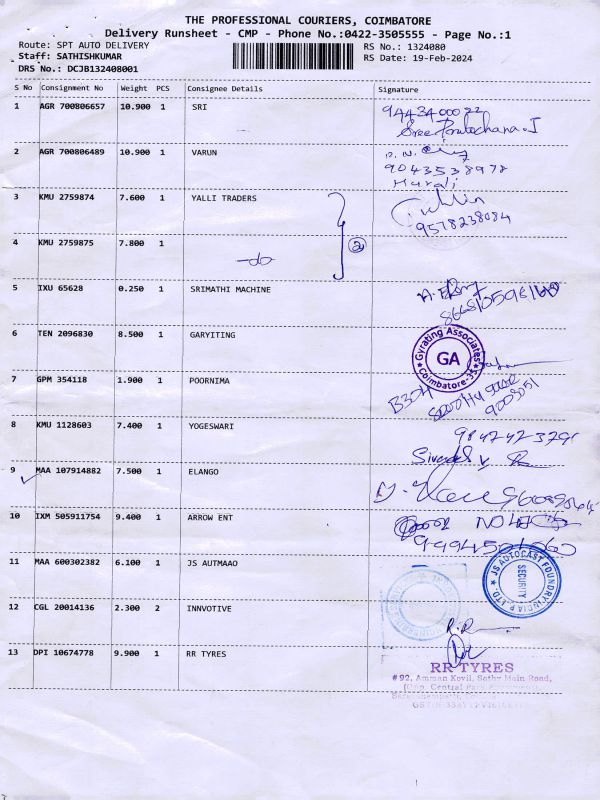 THE PROFESSIONAL COURIERS, COIMBATORE
Delivery Runsheet - CMP - Phone No.:0422-3505555 - Page No.:1
Route: SPT AUTO DELIVERY
RS No.: 1324080
Staff: SATHISHKUMAR
RS Date: 19-Feb-2024
DRS No.: DCJB132408001
S No Consignment No Weight PCS Consignee Details Signature
1 AGR 700806657 10.900 1 SRI
9443400022
2 AGR 700806489 10.900 1 VARUN
9043538978
Murali
3 KMU 2759874 7.600 1 YALLI TRADERS
9578238084
4 KMU 2759875 7.800 1
-do- 2
5 IXU 65628 0.250 1 SRIMATHI MACHINE
6 TEN 2096830 8.500 1 GARYITING
Gyrating Associates
GA
Coimbatore-35
7 GPM 354118 1.900 1 POORNIMA
8 KMU 1128603 7.400 1 YOGESWARI
9 MAA 107914882 7.500 1 ELANGO
10 IXM 505911754 9.400 1 ARROW ENT
11 MAA 600302382 6.100 1 JS AUTMAAO
JS AUTOCAST FOUNDRY INDIA P. LTD.
SECURITY
12 CGL 20014136 2.300 2 INNVOTIVE
13 DPI 10674778 9.900 1 RR TYRES
RR TYRES
# 92, Amman Kovil, Sathy Main Road,